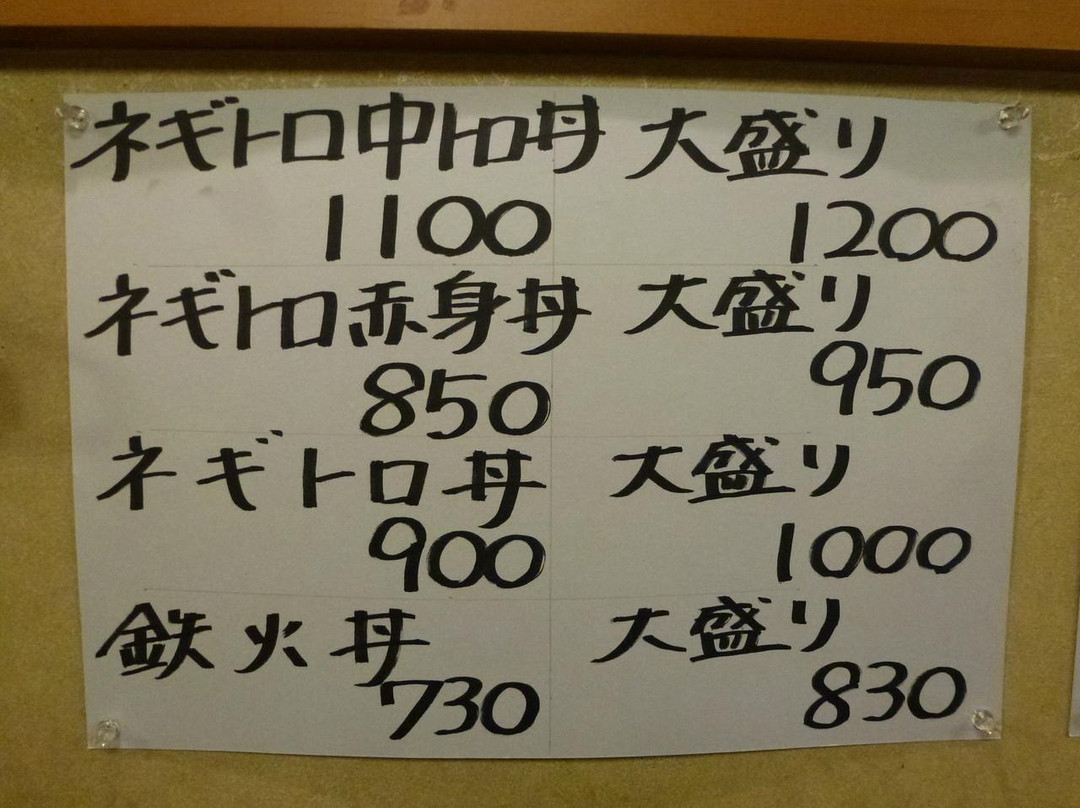 ネギトロ中トロ丼 大盛り
1100 1200
ネギトロ赤身丼 大盛り
850 950
ネギトロ丼 大盛り
900 1000
鉄火丼 大盛り
730 830